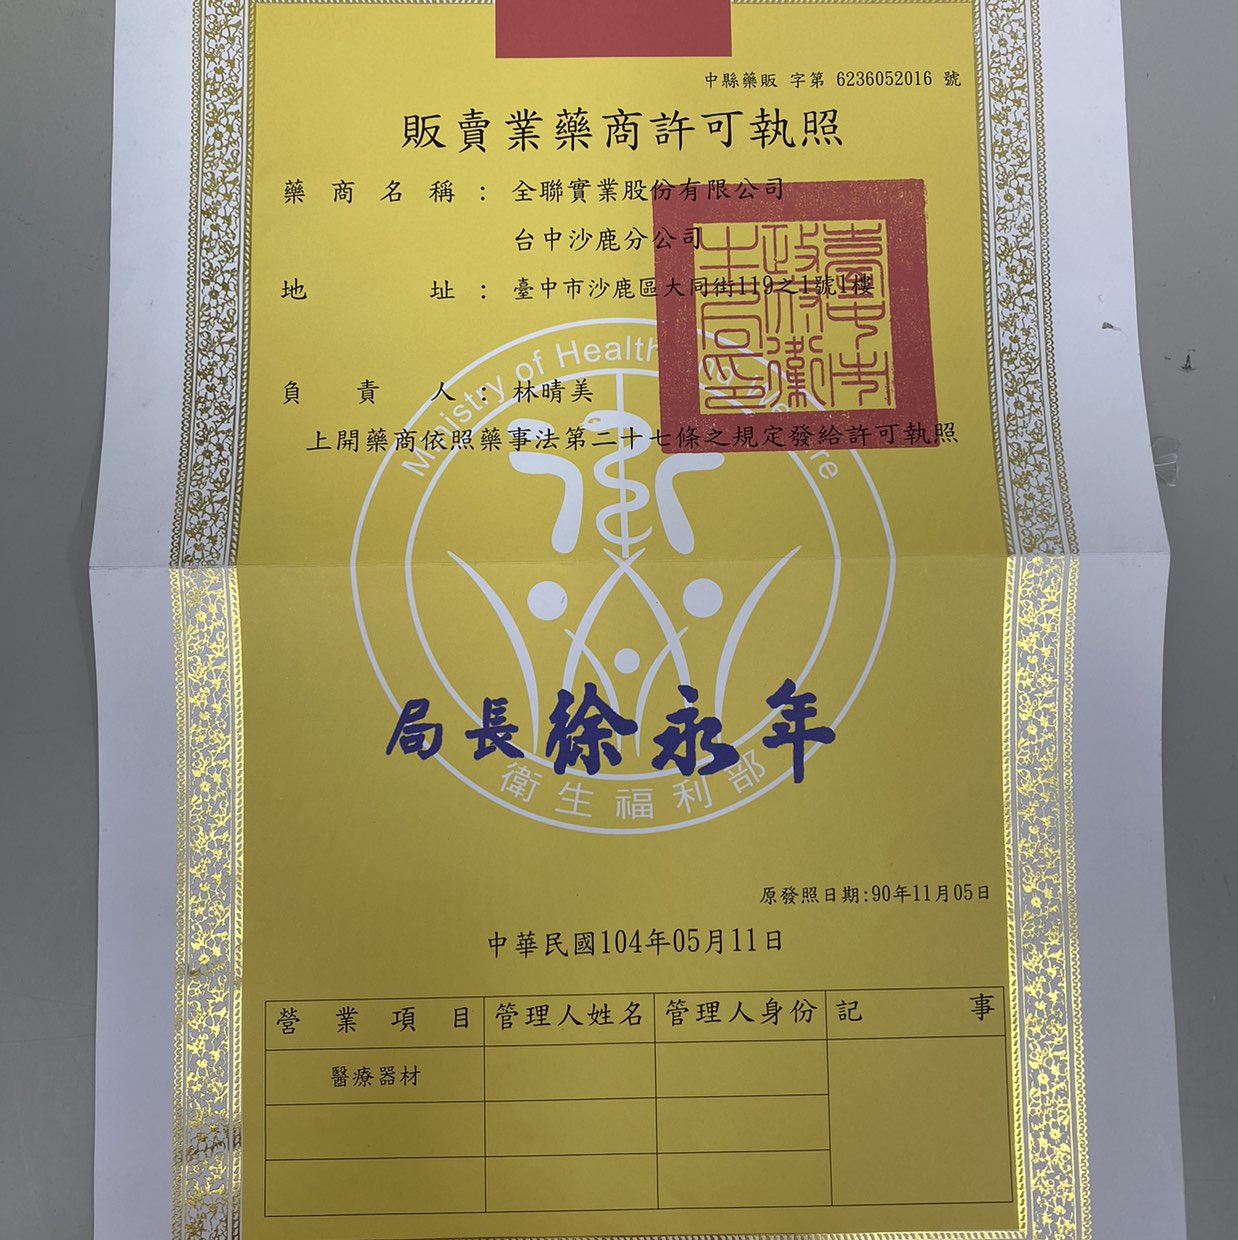 中縣藥販 字第 6236052016 號
販賣業藥商許可執照
藥商名稱：全聯實業股份有限公司
台中沙鹿分公司
地址：臺中市沙鹿區大同街119之1號1樓
負責人：林晴美
上開藥商依照藥事法第二十七條之規定發給許可執照
臺中市政府衛生局印
Ministry of Health and Welfare
局長徐永年
衛生福利部
原發照日期:90年11月05日
中華民國104年05月11日
營業項目 管理人姓名 管理人身份 記事
醫療器材